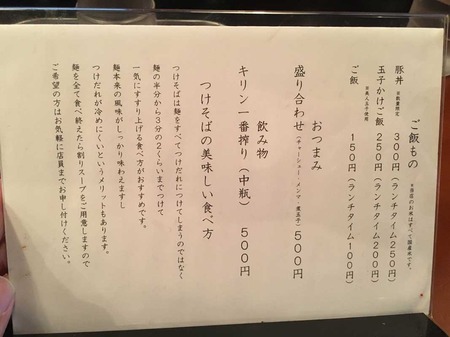 ご飯もの ※当店のお米はすべて国産米です。
豚丼 ※数量限定 300円(ランチタイム250円)
玉子かけご飯 250円(ランチタイム200円)
ご飯 150円(ランチタイム100円)
おつまみ
盛り合わせ(チャーシュー・メンマ・煮玉子)500円
飲み物
キリン一番搾り(中瓶) 500円
つけそばの美味しい食べ方
つけそばは麺をすべてつけだれにつけてしまうのではなく
麺の半分から3分の2くらいまでつけて
一気にすすり上げる食べ方がおすすめです。
麺本来の風味がしっかり味わえますし
つけだれが冷めにくいというメリットもあります。
麺を全て食べ終えたら割りスープをご用意しますので
ご希望の方はお気軽に店員までお申し付けください。